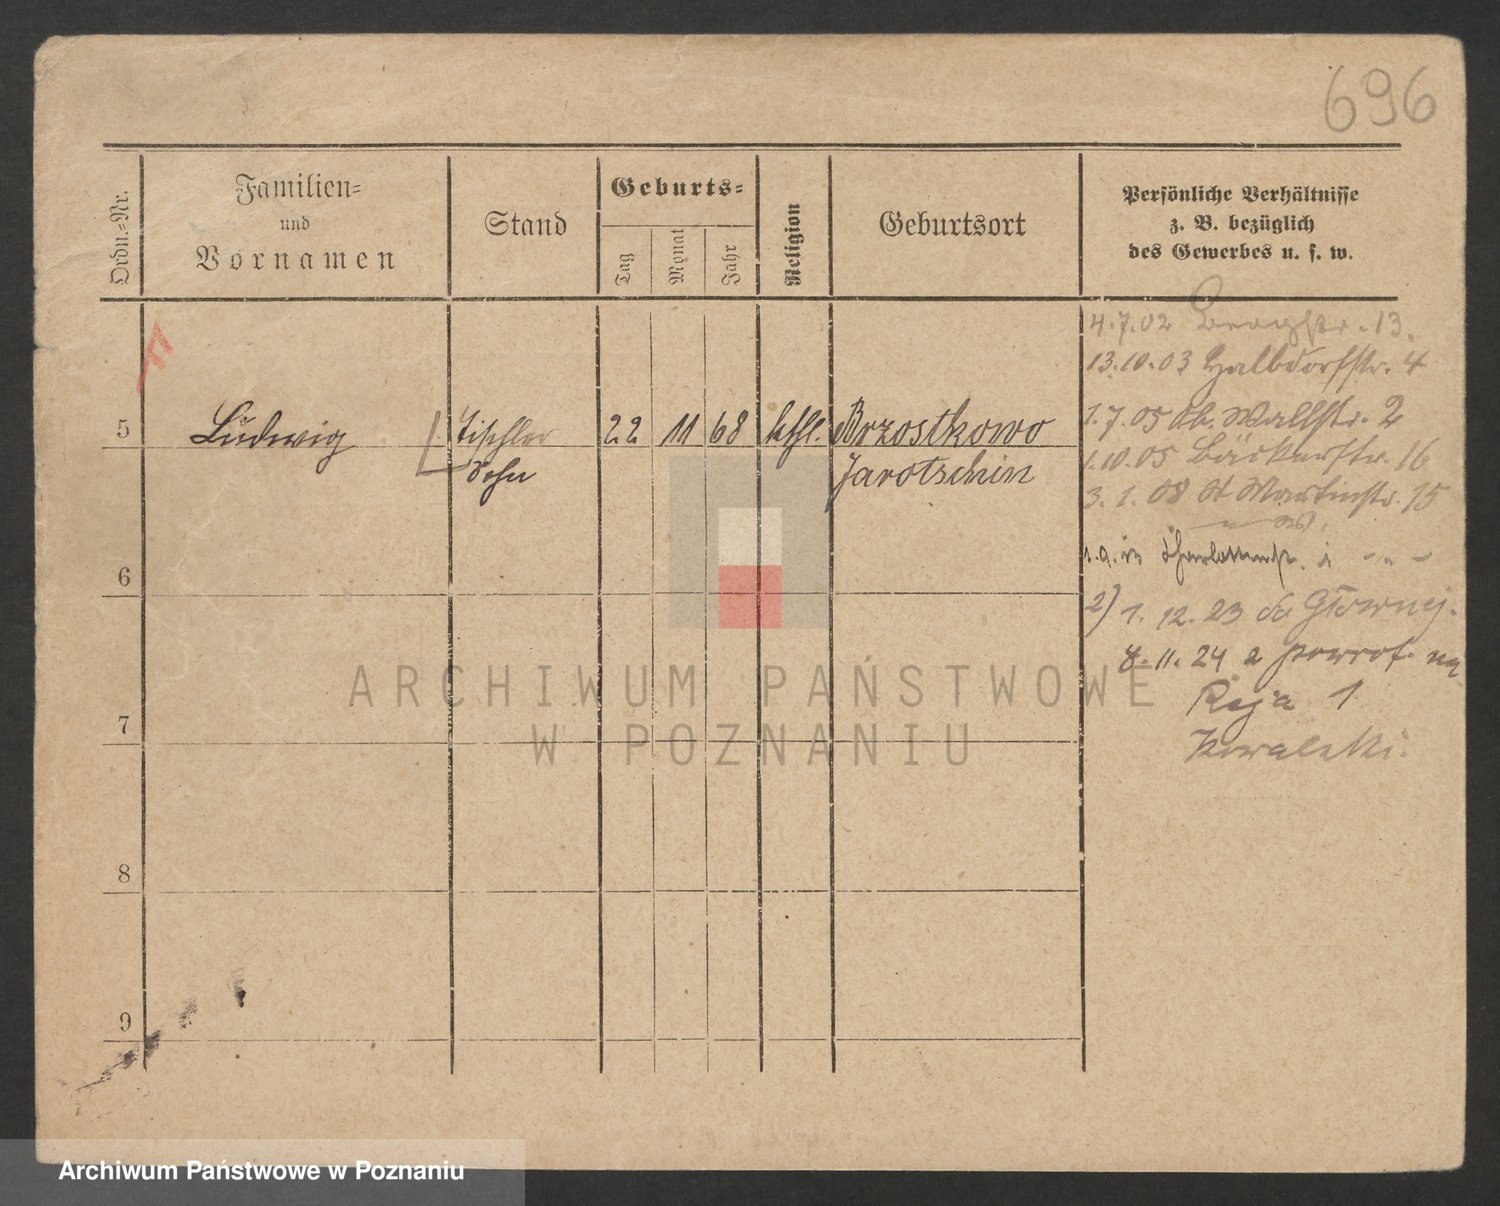 696
Ordn.=Nr.
Familien=
und
Vornamen
Stand
Geburts=
Tag
Monat
Jahr
Religion
Geburtsort
Persönliche Verhältnisse
z. B. bezüglich
des Gewerbes u. s. w.
4.7.02 Bergstr. 13.
13.10.03 Halbdorfstr. 4
5 Ludwig Tischler 22 11 68 kthl. Brzostkowo
Sohn Jarotschin
1.7.05 Ob. Wallstr. 2
1.10.05 Bäckerstr. 16
3. 1. 08 St Martinstr. 75
6
2) 1. 12. 23 do Głównej.
8. 11. 24 z powrot. na
Reja 1
Kowalski.
7
8
9
ARCHIWUM PAŃSTWOWE
W POZNANIU
Archiwum Państwowe w Poznaniu